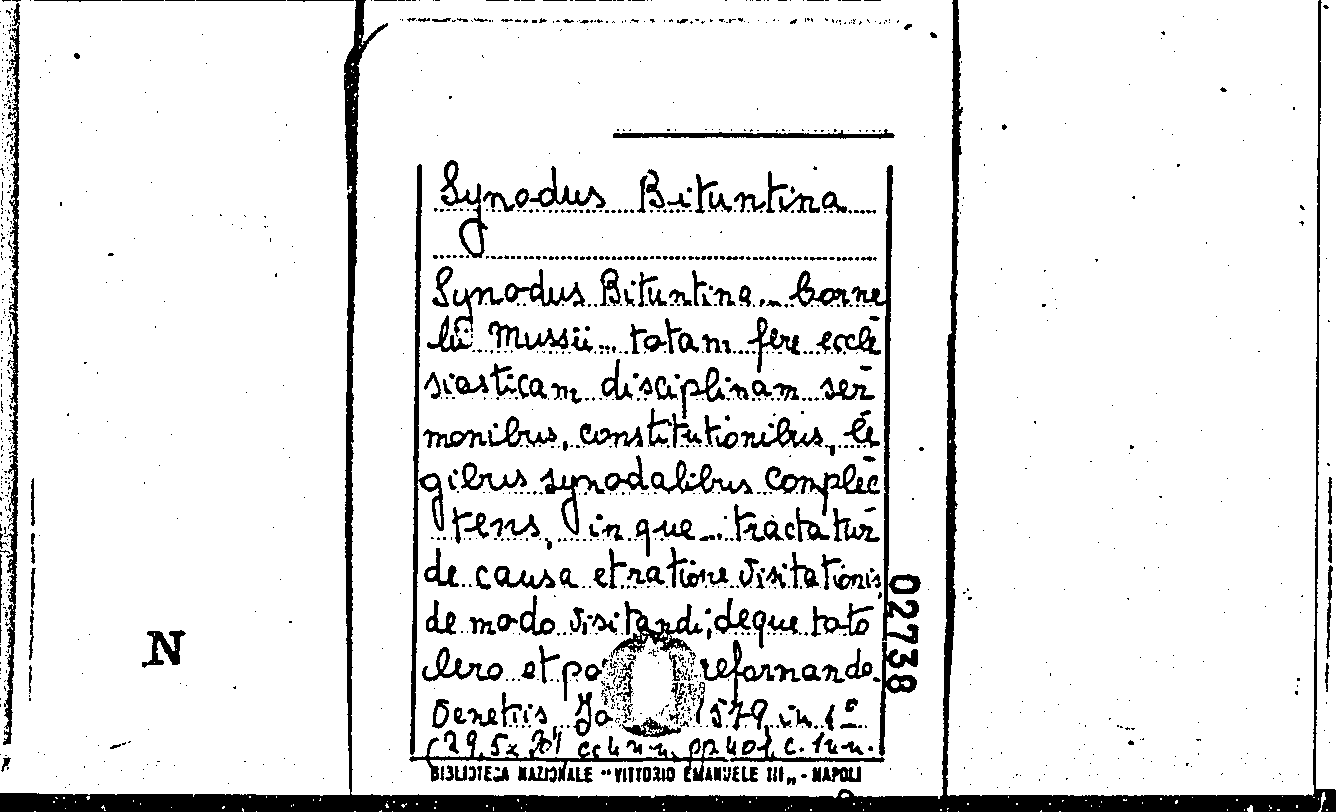 Synodus Bituntina
Synodus Bituntina... Corne
lii Mussii... totam fere eccle
siasticam disciplinam ser
monibus, constitutionibus, le
gibus synodalibus complec
tens, in que... tractatur
de causa et ratione visitationis,
de modo visitandi; deque toto
clero et po reformando.
Venetiis 1579 in 1º
cc 4 n.n. pp 401 c. 1 n.n.
BIBLIOTECA NAZIONALE "VITTORIO EMANUELE III„ - NAPOLI
02738
N